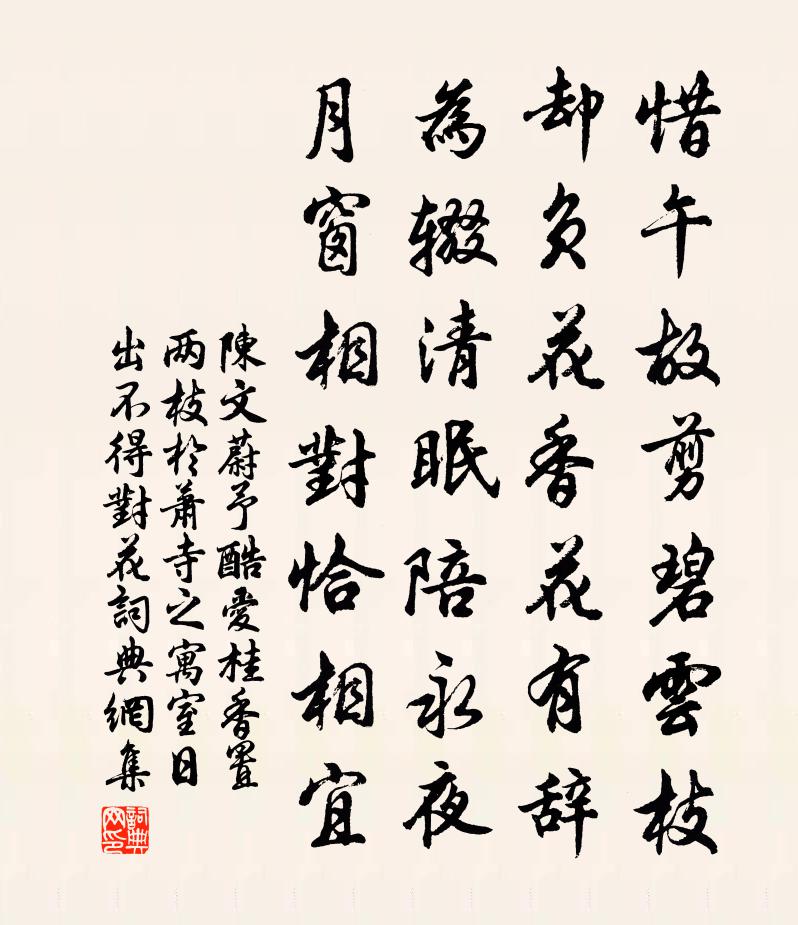 惜午故剪碧雲枝
却负花香花有辞
為辍清眠陪永夜
月窗相對恰相宜
陳文蔚予酷愛桂香置
两枝於蕭寺之寓室日
出不得對花詞典網集
詞典网印